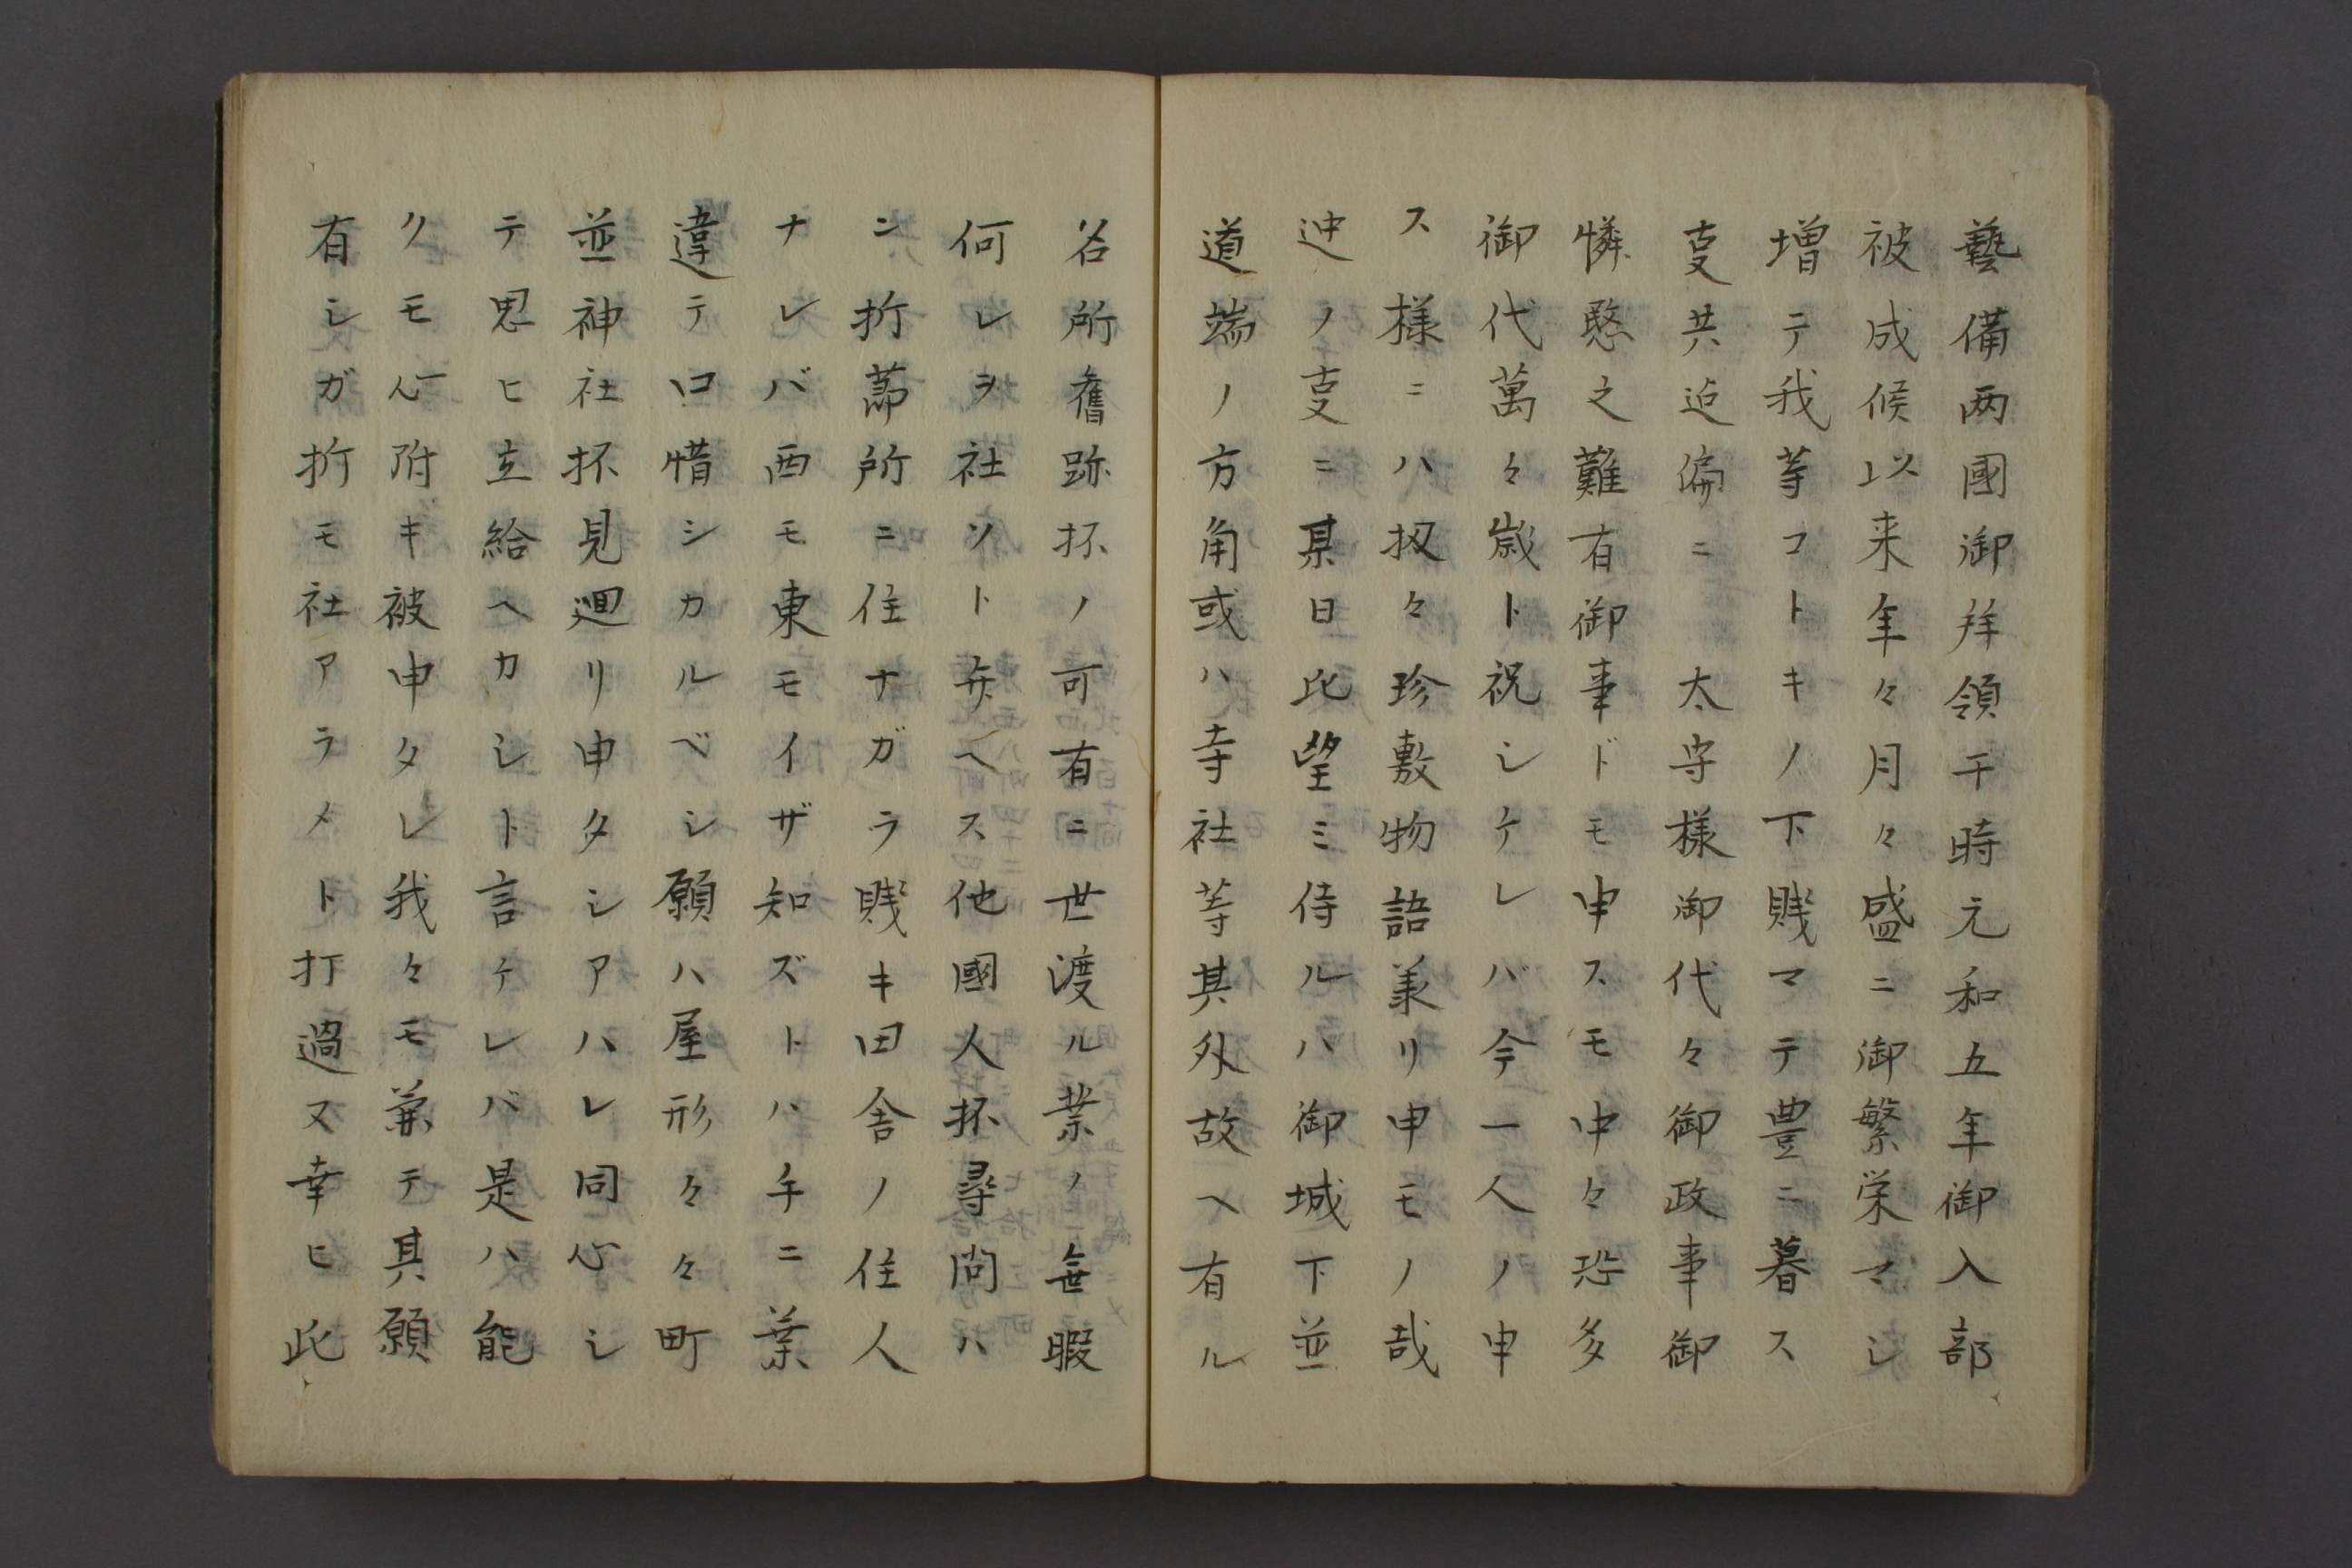 藝備两國御拜領干時元和五年御入部
被成候以来年々月々盛ニ御繁栄マシ
増テ我等コトキノ下賤マテ豊ニ暮ス
㕝共迠偏ニ 太守様御代々御政事御
憐愍之難有御事ドモ申スモ中々恐多
御代萬々歳ト祝シケレバ今一人ノ申
ス様ニハ扨々珍敷物語羕リ申モノ哉
迚ノ㕝ニ某日比望ミ侍ルハ御城下並
道端ノ方角或ハ寺社等其外故ヘ有ル
名所舊跡抔ノ可有ニ世渡ル業ノ無暇
何レヲ社ソト弁ヘス他國人抔尋問ハ
ン折莭所ニ住ナガラ賎キ田舎ノ住人
ナレバ西モ東モイザ知ズトハ手ニ葉
違テ口惜シカルベシ願ハ屋形々々町
並神社抔見廻リ申タシアハレ同心シ
テ思ヒ立給ヘカシト言ケレバ是ハ能
クモ心附キ被申タレ我々モ兼テ其願
有シガ折モ社アラメト打過又幸ヒ此